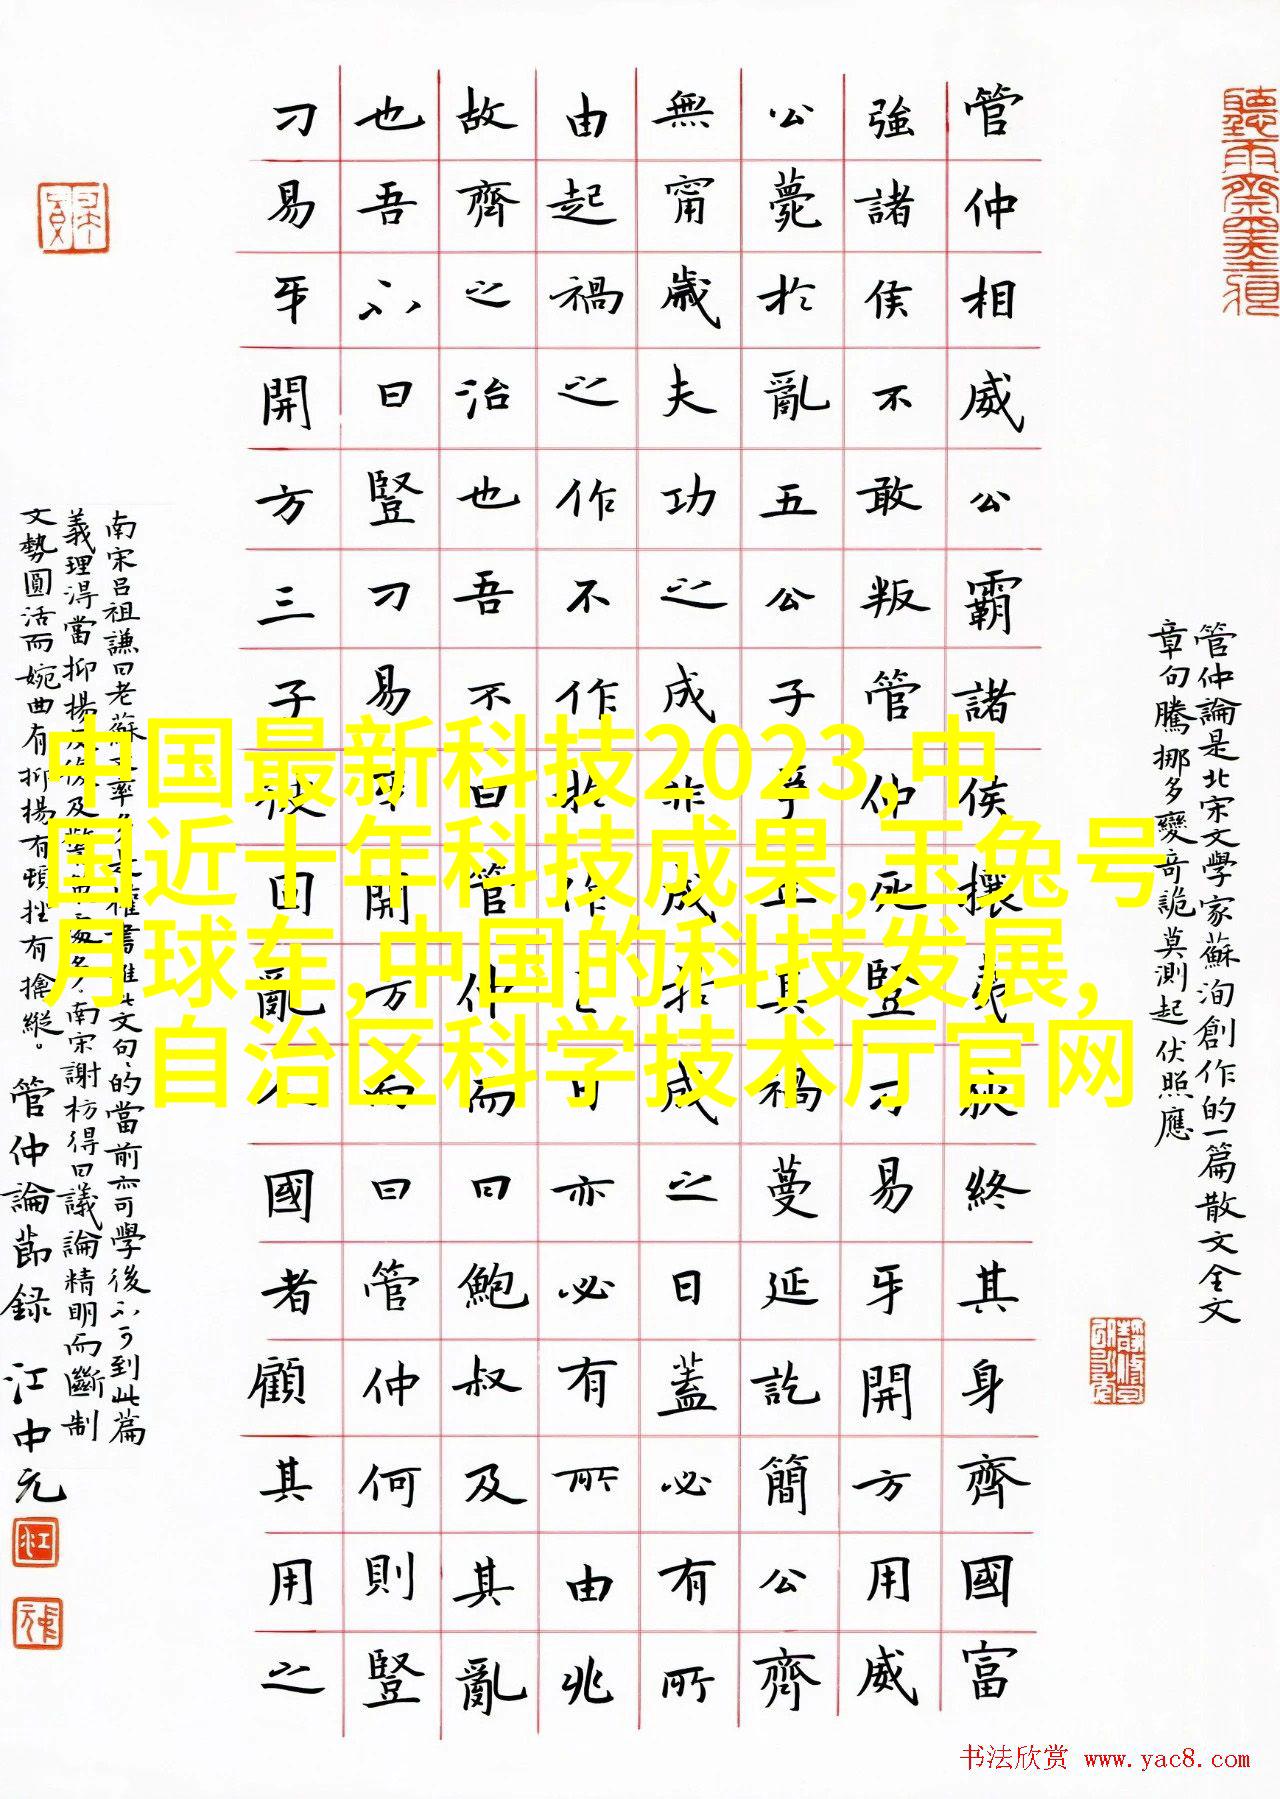 管仲相威公霸諸侯攘夷狄終其身齊國富
強諸侯不敢叛管仲死豎刁易牙開方用威
公薨於亂五公子爭立其禍蔓延訖簡公齊
無甯歲夫功之成非成於成之日蓋必有所
由起禍之作不作於作之日亦必有所由兆
故齊之治也吾不曰管仲而曰鮑叔及其亂
也吾不曰豎刁易牙開方而曰管仲何則豎
刁易牙開方三子彼固亂人國者顧其用之
管仲論是北宋文學家蘇洵創作的一篇散文全文
章句騰挪多變奇詭莫測起伏照應
南宋吕祖謙曰老蘇大率多是權書惟此文句句的當前亦可學後不可到此篇
義理淂當抑揚反復及警策處多南宋謝枋得曰議論精明而斷制
文勢圓活而婉曲有抑揚有頓挫有擒縱。管仲論節録 江中元
中国最新科技2023,中
国近十年科技成果,玉兔号
月球车,中国的科技发展,
自治区科学技术厅官网
书法欣赏 www.yac8.com